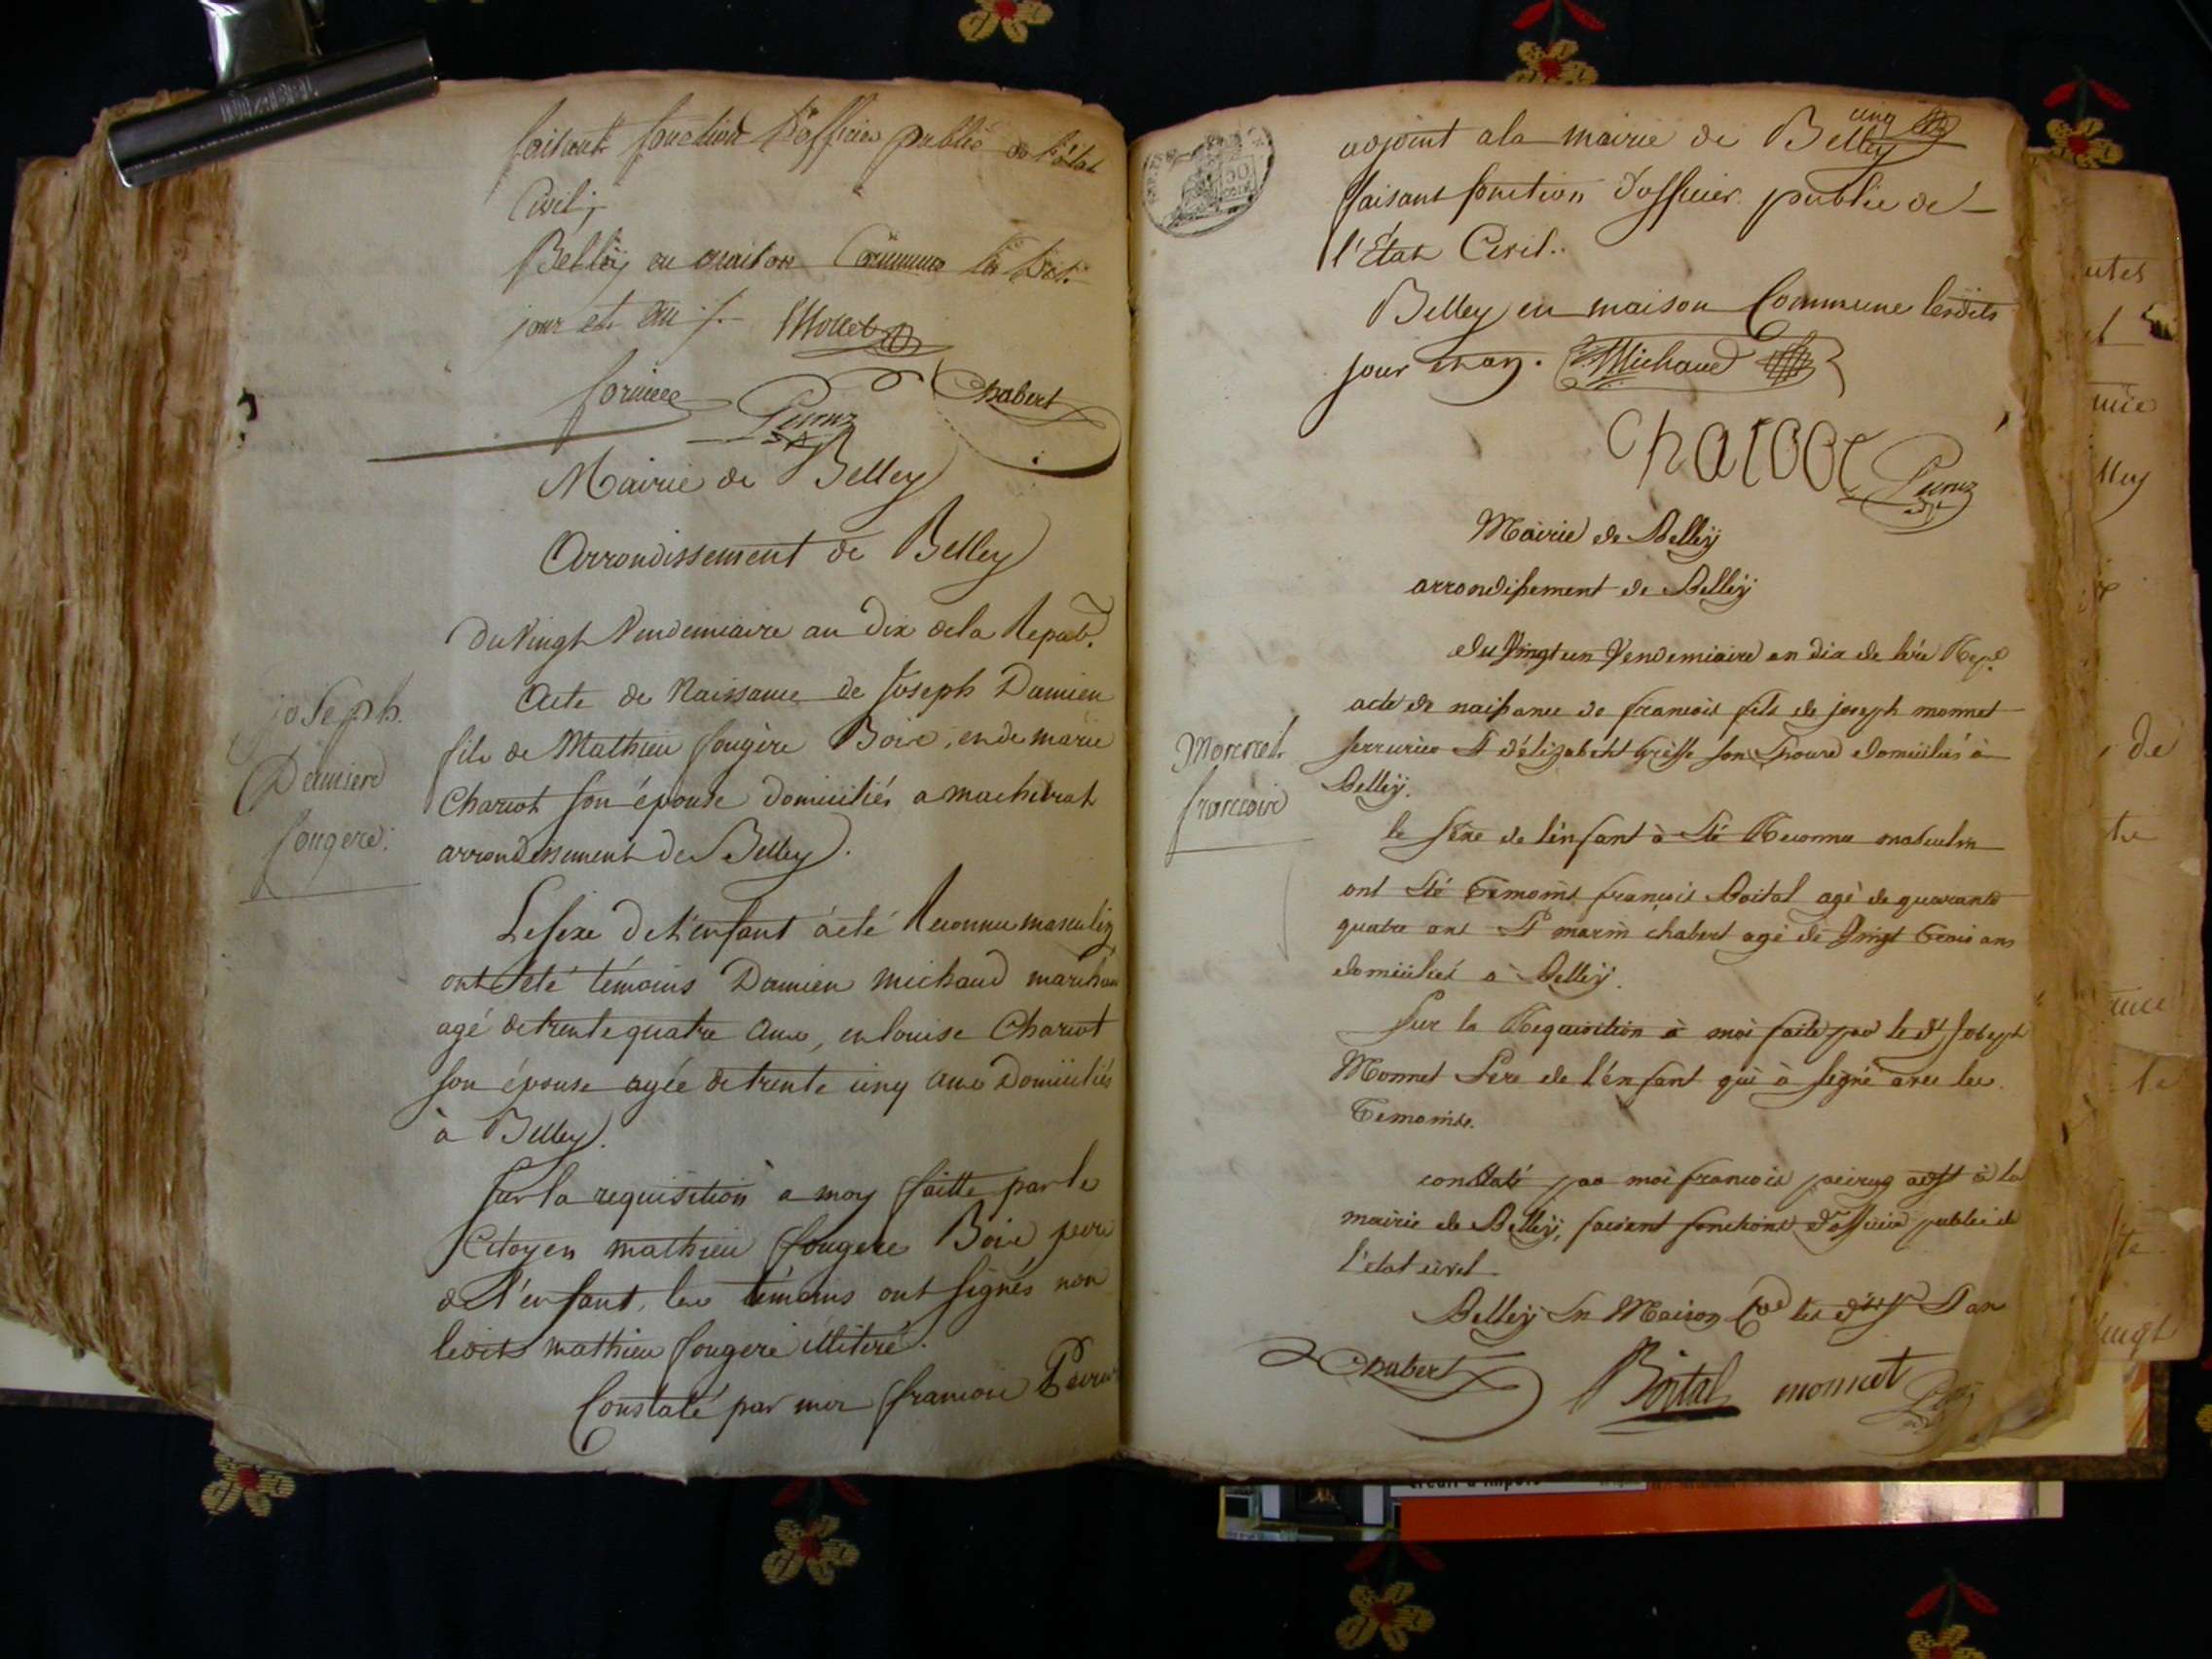 faisant fonction d'officier public de l'état
Civil,
Belley en maison Commune les dits
jour et an ./. Mollet
forime
Chabert
Mairie de Belley
Arrondissement de Belley
Du Vingt Vendemiaire an Dix de la Repub.
Acte de Naissance de Joseph Damien
fils de Mathieu fougère Boix, et de marie
Chariot son épouse domiciliés a
arrondissement de Belley.
joseph
Damien
fougere.
Le sexe de l'enfant à été Reconnu masculin
ont été témoins Damien michaud marchan
agé de trente quatre ans, et louise Chariot
son épouse agée de trente cinq ans Domiciliés
à Belley.
Sur la requisition a moy faitte par le
Citoyen mathieu fougere Boix pere
de l'enfant, les témoins ont signés non
ledit mathieu fougere illiteré.
Constaté par moi francois
cinq
adjoint a la mairie de Belley
faisant fonction d'officier public de
l'Etat Civil.
Belley en maison Commune lesdits
jour et an. Michaud
Mairie de Belley
arrondissement de Belley
du Vingt un Vendemiaire an dix de l'ère Rep.
acte de naissance de francois fils de joseph monnet
serrurier et d'élizabeht son Epouse domiciliés à
Belley.
Monnet
francois
le sexe de l'énfant à été Reconnu masculin
ont été temoins françois Boital agé de quarante
quatre ans et marin chabert agé de Vingt trois ans
domiciliés à Belley.
Sur la Requisition à moi faite par le dt Joseph
Monnet Père de l'énfant qui à signé avec les
temoins.
constaté par moi francois adjt à la
mairie de Belley, faisant fonctions d'officier public de
l'etat civil
Belley En Maison les dits Et an
Chabert Boital monnet